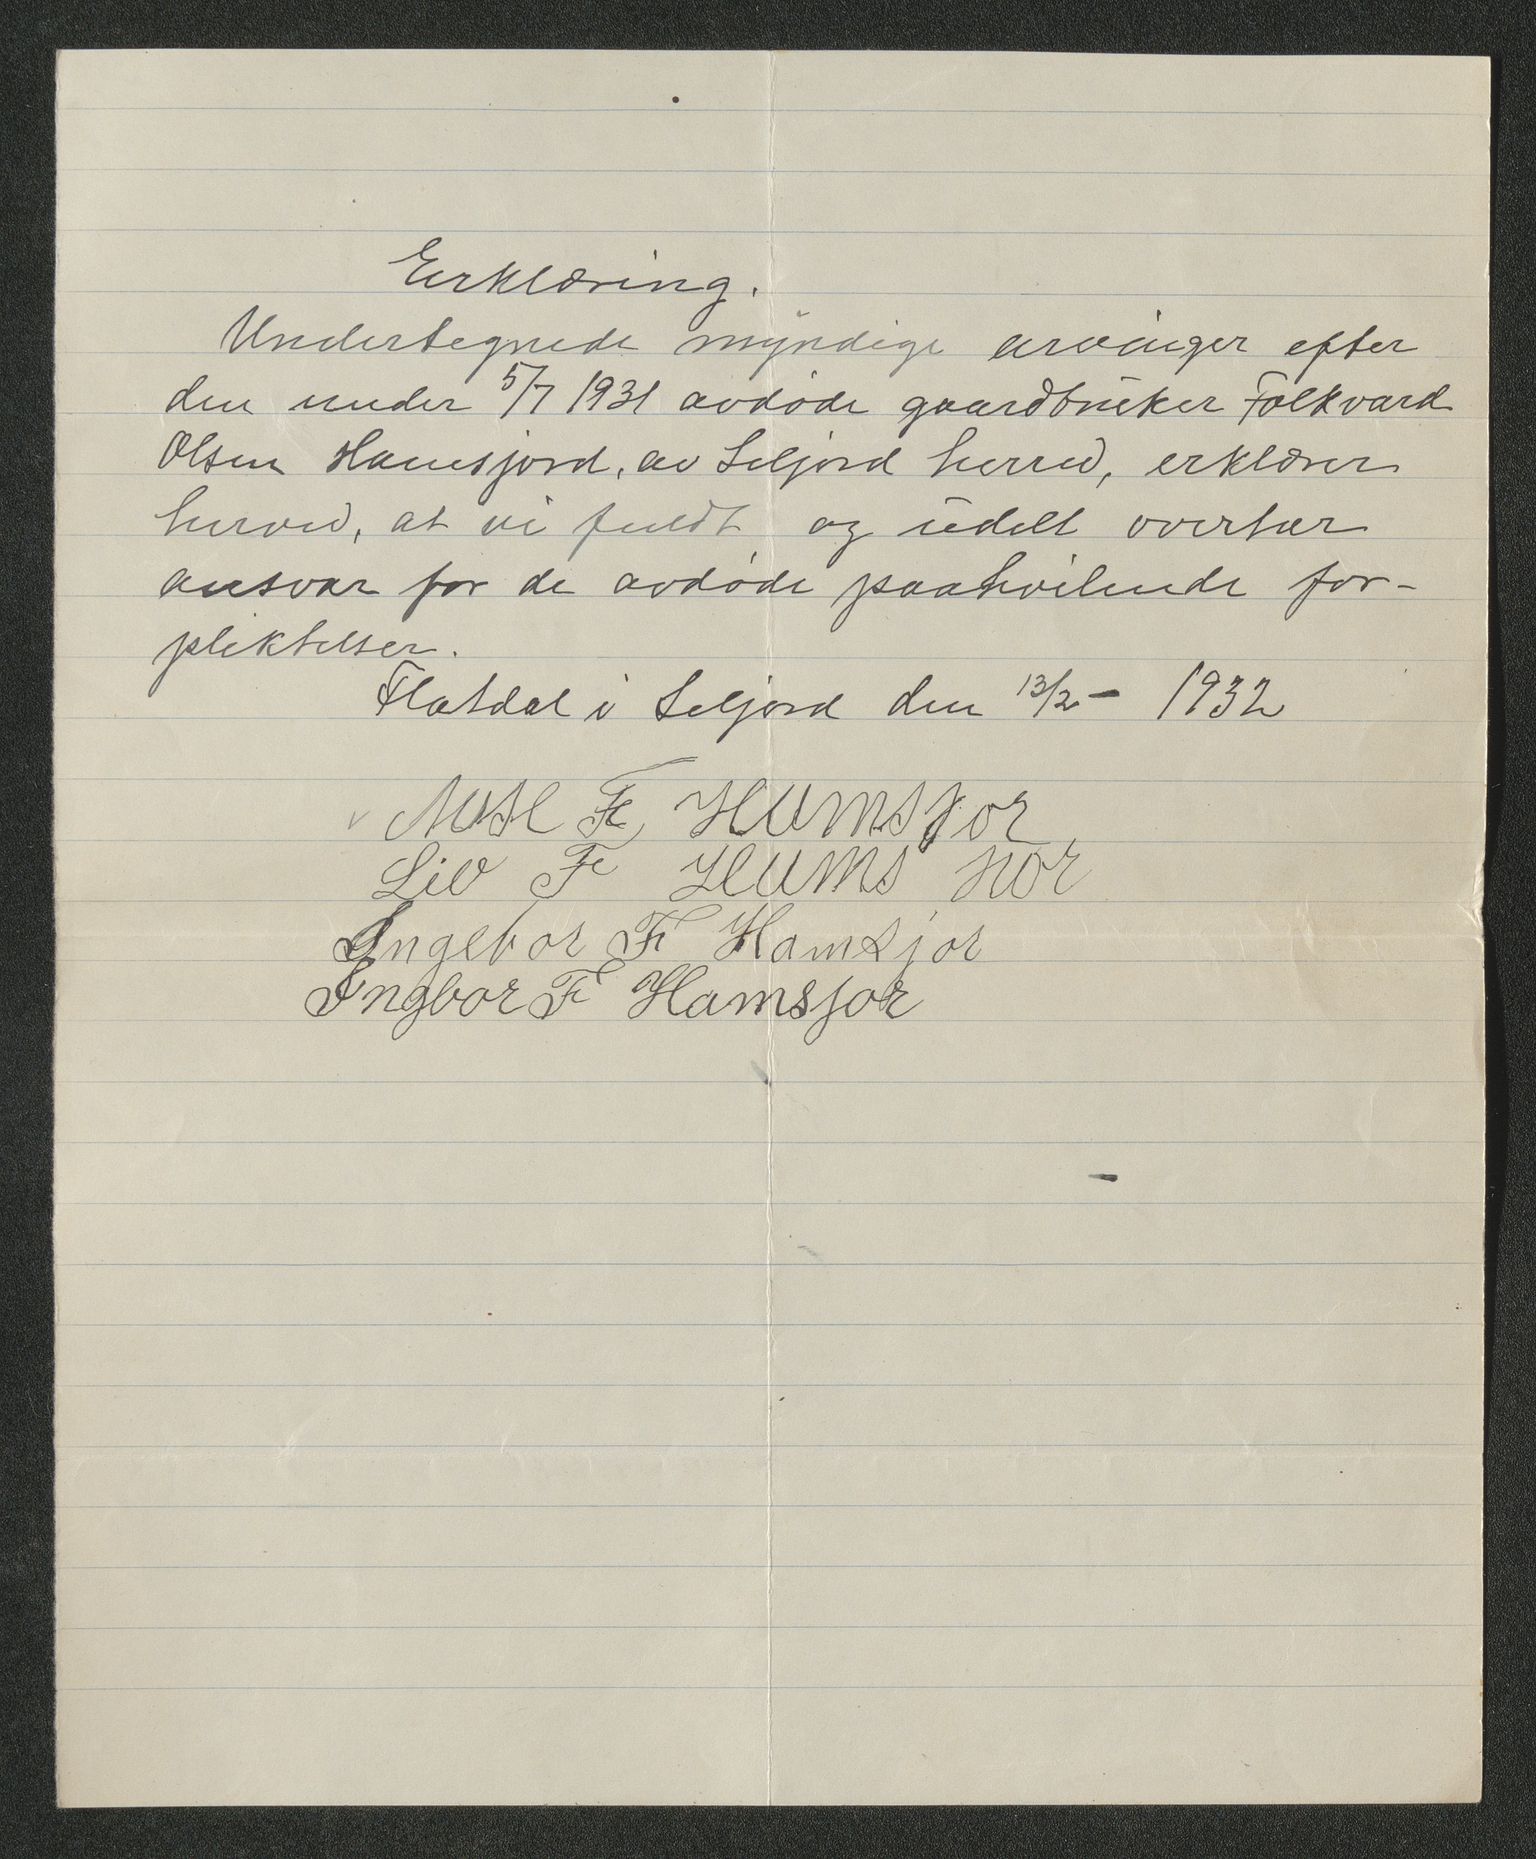 Erklæring.
Undertegnede myndige arvinger efter
den under 5/7 1931 avdøde gaardbruker Folkvard
Olsen Hamsjord, av Seljord herred, erklærer
herved, at vi fuldt og udelt overtar
ansvar for de avdøde paahvilende for-
pliktelser.
Flatdal i Seljord den 13/2 - 1932
F Humsjor
Liv F Hums jior
Ingebor F Hamsjor
Ingbor F Hamsjor